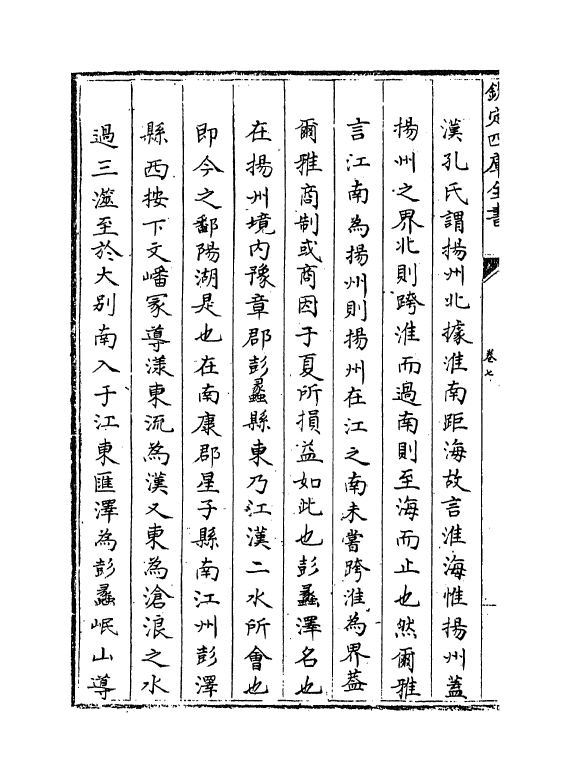 欽定四庫全書
卷七
漢孔氏謂揚州北據淮南距海故言淮海惟揚州蓋
揚州之界北則跨淮而過南則至海而止也然爾雅
言江南為揚州則揚州在江之南未嘗跨淮為界蓋
爾雅商制或商因于夏所損益如此也彭蠡澤名也
在揚州境内豫章郡彭蠡縣東乃江漢二水所會也
即今之鄱陽湖是也在南康郡星子縣南江州彭澤
縣西按下文嶓冢導漾東流為漢又東為滄浪之水
過三澨至於大别南入于江東匯澤為彭蠡岷山導